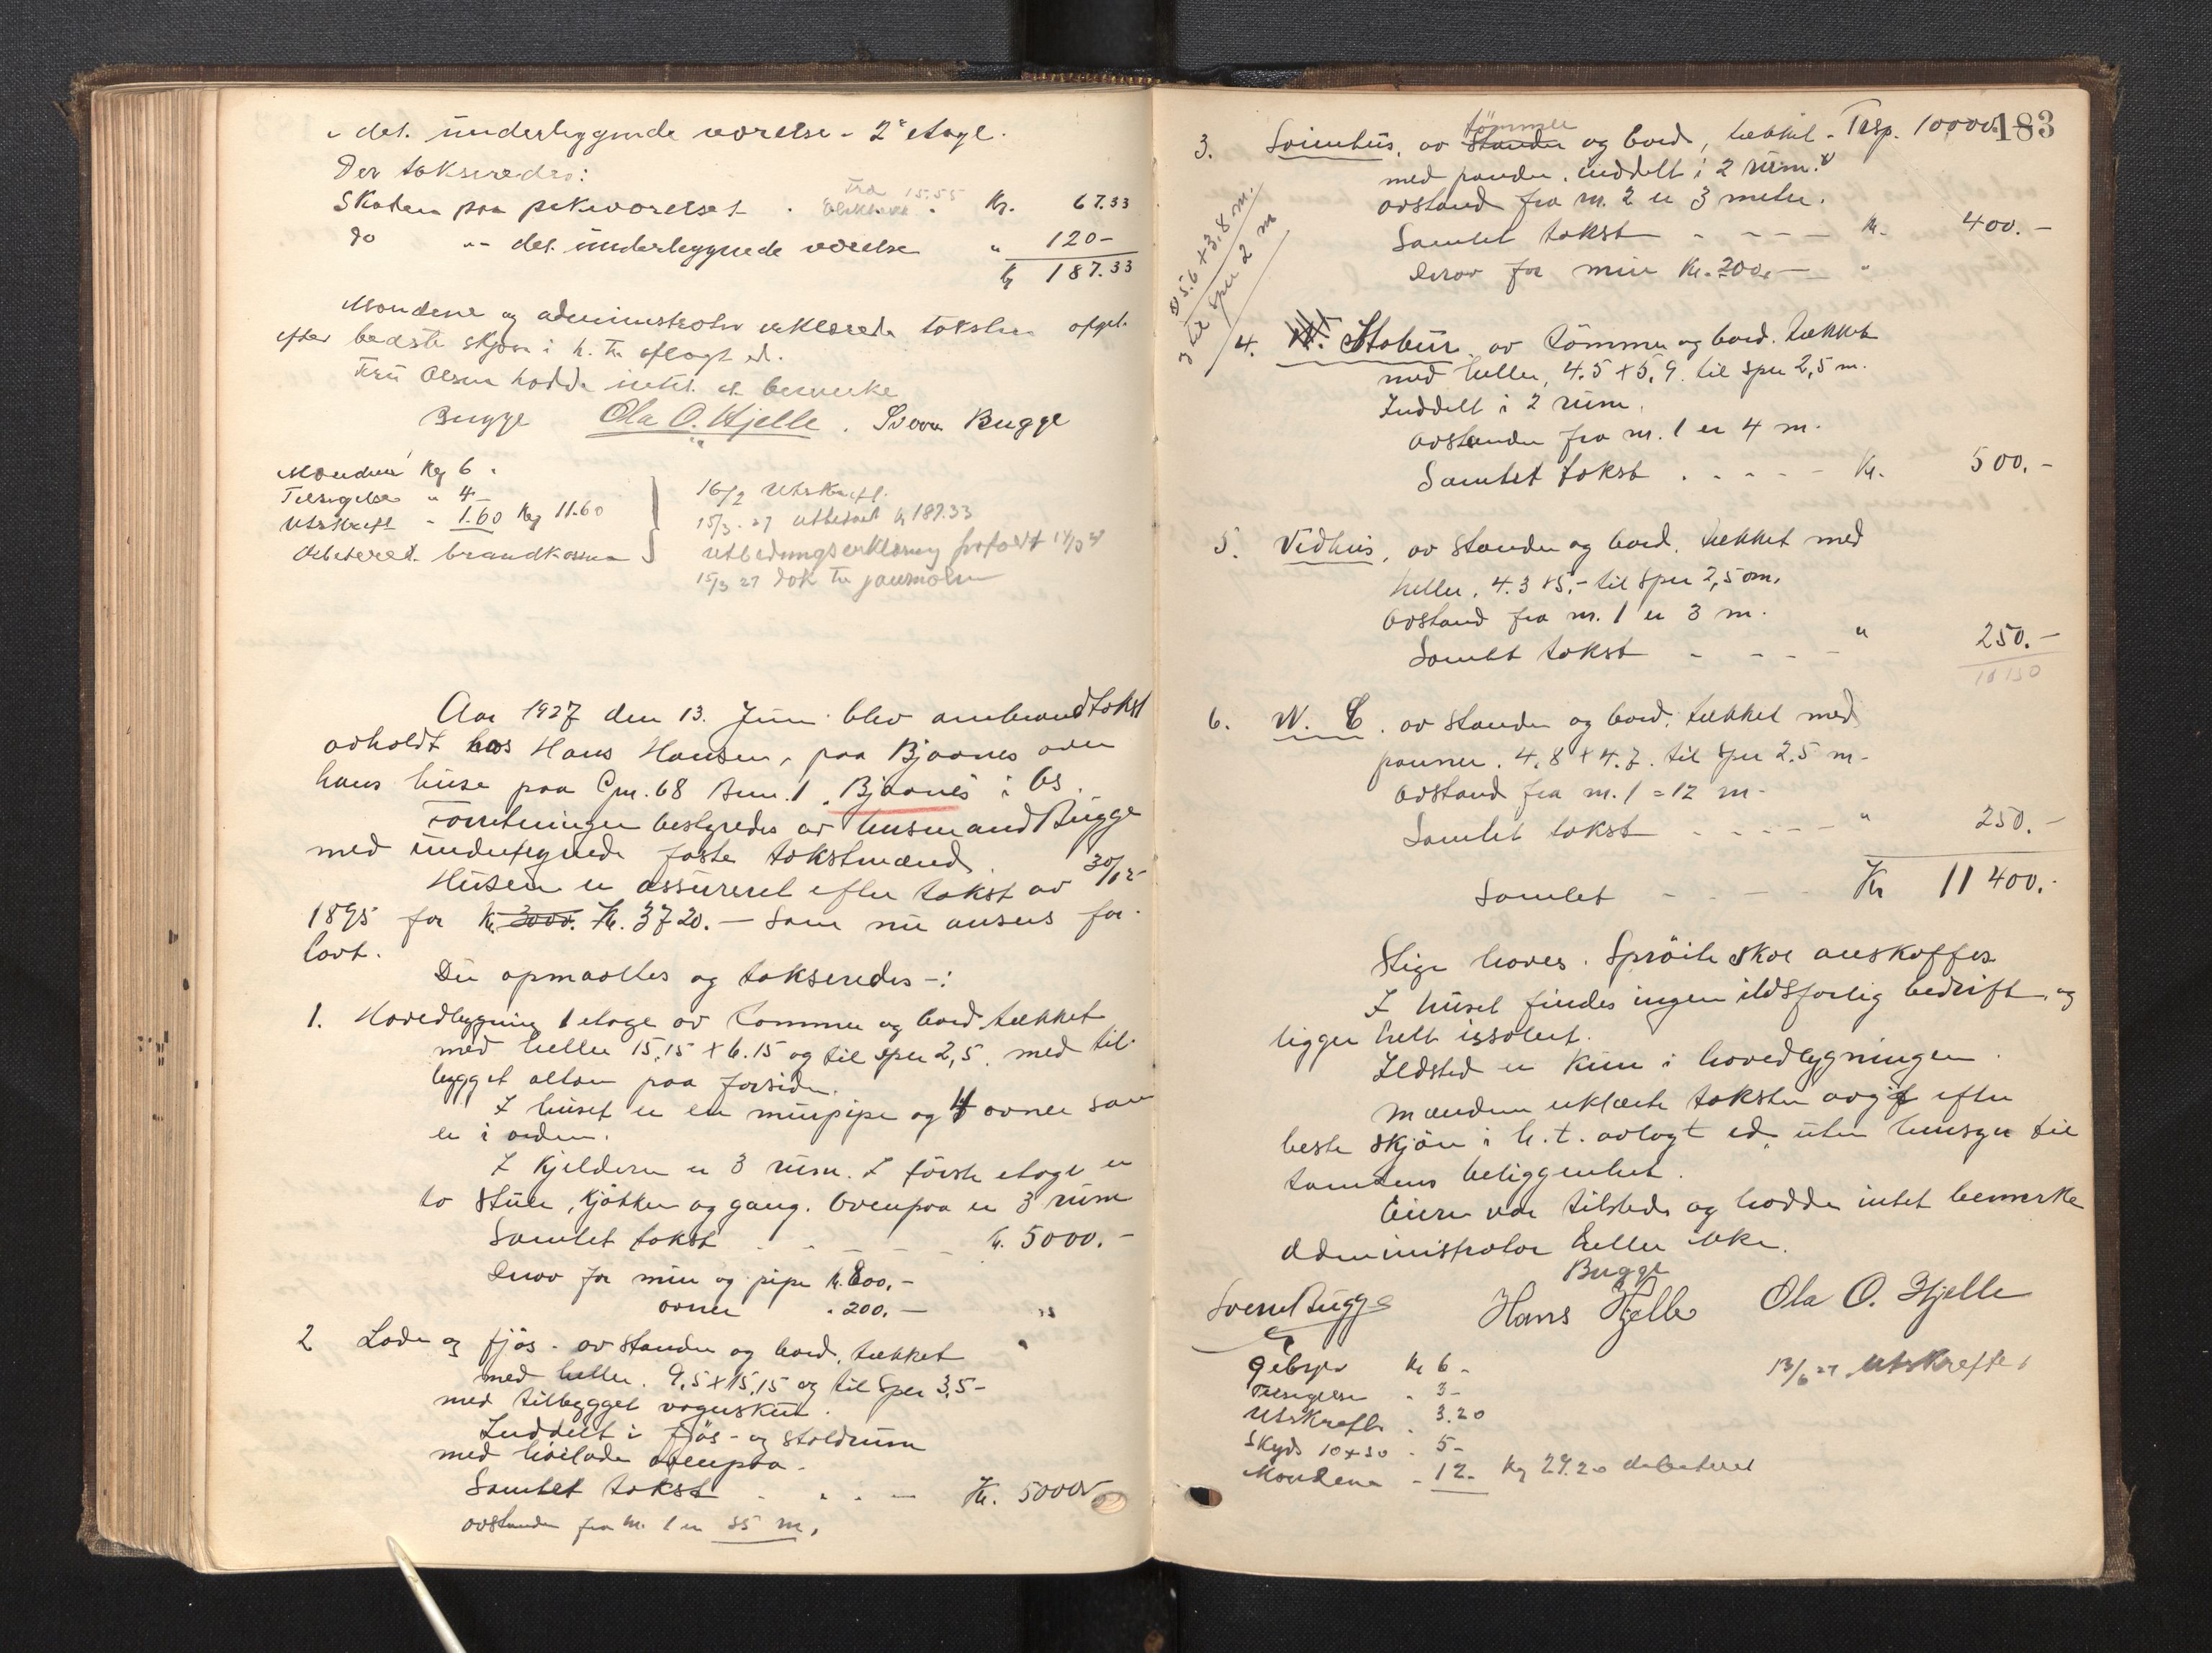 i det underliggende værelse i 2' etage.
Der takseredes:
Skaden paa pikeværelset . Kr. 67.33
15.55
do " det underliggende værelse " 120-
Kr 187.33
Mændene og administrator erklærede taksten afgit
efter bedste skjøn i h. til aflagt ed.
Fru Olsen hadde intet at bemerke
Bugge Ola O. Hjelle. Sverre Bugge
Mændene Kr 6.
Tilsigelse " 4-
Utskrift - 1.60 Kr 11.60
Debiteret brandkassen
16/2 Utskrift.
15/3-27 utbetalt kr 187.33
Utbedringserklæring
15/3 27 dok til journalen
Aar 1927 den 13. Juni blev ombrandtakst
avholdt hos Hans Hansen, paa Bjaanes over
hans huse paa Gnr. 68 Bnr. 1 "Bjaanes" i Os.
Forretningen bestyredes av lensmand Bugge
med undertegnede faste takstmænd.
Husene er assureret efter takst av 30/12-
1895 for kr. 3000. Kr. 3720.- som nu ansees for
lavt.
Der opmaaltes og takseredes -:
1. Hovedbygning 1 etage av tømmer og bord tækket
med heller 15,15 x 6.15 og til sper 2,5. med til-
bygget altan paa forsiden.
I huset er en murpipe og 4 ovner som
er i orden.
I kjelderen er 3 rum. I første etage er
to stuer, kjøkken og gang. Ovenpaa er 3 rum
Samlet takst . . - - - kr. 5000.-
Derav for mur og pipe kr. 800.-
ovner " 200.-
2 Lade og fjøs - av stender og bord, tækket
med heller. 9,5 x 15,15 og til sper 3,5-
med tilbygget vognskur.
Inddelt i fjøs- og staldrum
med høilade ovenpaa.
Samlet takst . . . - Kr. 5000.-
avstanden fra nr. 1 er 35 m.
183
Trsp. 10000.-
3. Svinehus, av stender tømmer og bord, tækket
med pander. Inddelt i 2 rum. x
avstand fra nr. 2 er 3 meter.
Samlet takst - - - - Kr. 400.-
Derav for mur Kr. 200.- "
x) 5.6 x 3,8 m.
og til sper 2 m
4. Stabur av tømmer og bord. Tækket
med heller, 4.5 x 5,9. til sper 2,5 m.
Inddelt i 2 rum.
avstanden fra nr. 1 er 4 m.
Samlet takst . - - - - Kr. 500.-
5. Vedhus, av stender og bord. tækket med
heller. 4.3 x 5.- til sper 2,5 m.
avstand fra nr. 1 er 3 m.
Samlet takst - - - - " 250.-
6. W. C. av stender og bord. tækket med
panner. 4,8 x 4.7. til sper 2.5 m-
avstand fra nr. 1 = 12 m-
Samlet takst - - - - - " 250.-
Samlet - - - - Kr 11400.-
Stige haves. Sprøite skal anskaffes.
I huset findes ingen ildsfarlig bedrift, og
ligger helt issolert.
Ildsted er kun i hovedbygningen.
Mændene erklærte taksten avgit efter
beste skjøn i h. t. avlagt ed, uten hensyn til
tomtens beliggenhet.
Eieren var tilstede og hadde intet bemerke
Administrator heller ikke.
Bugge
Sverre Bugge Hans Hjelle Ola O. Hjelle
Gebyr kr 6-
Tilsigelse " 3-
Utskrift . 3.20
Skyds 10x50 - 5-
Mændene - 12- Kr 29.20 debiteret
13/6 27 utskrevet